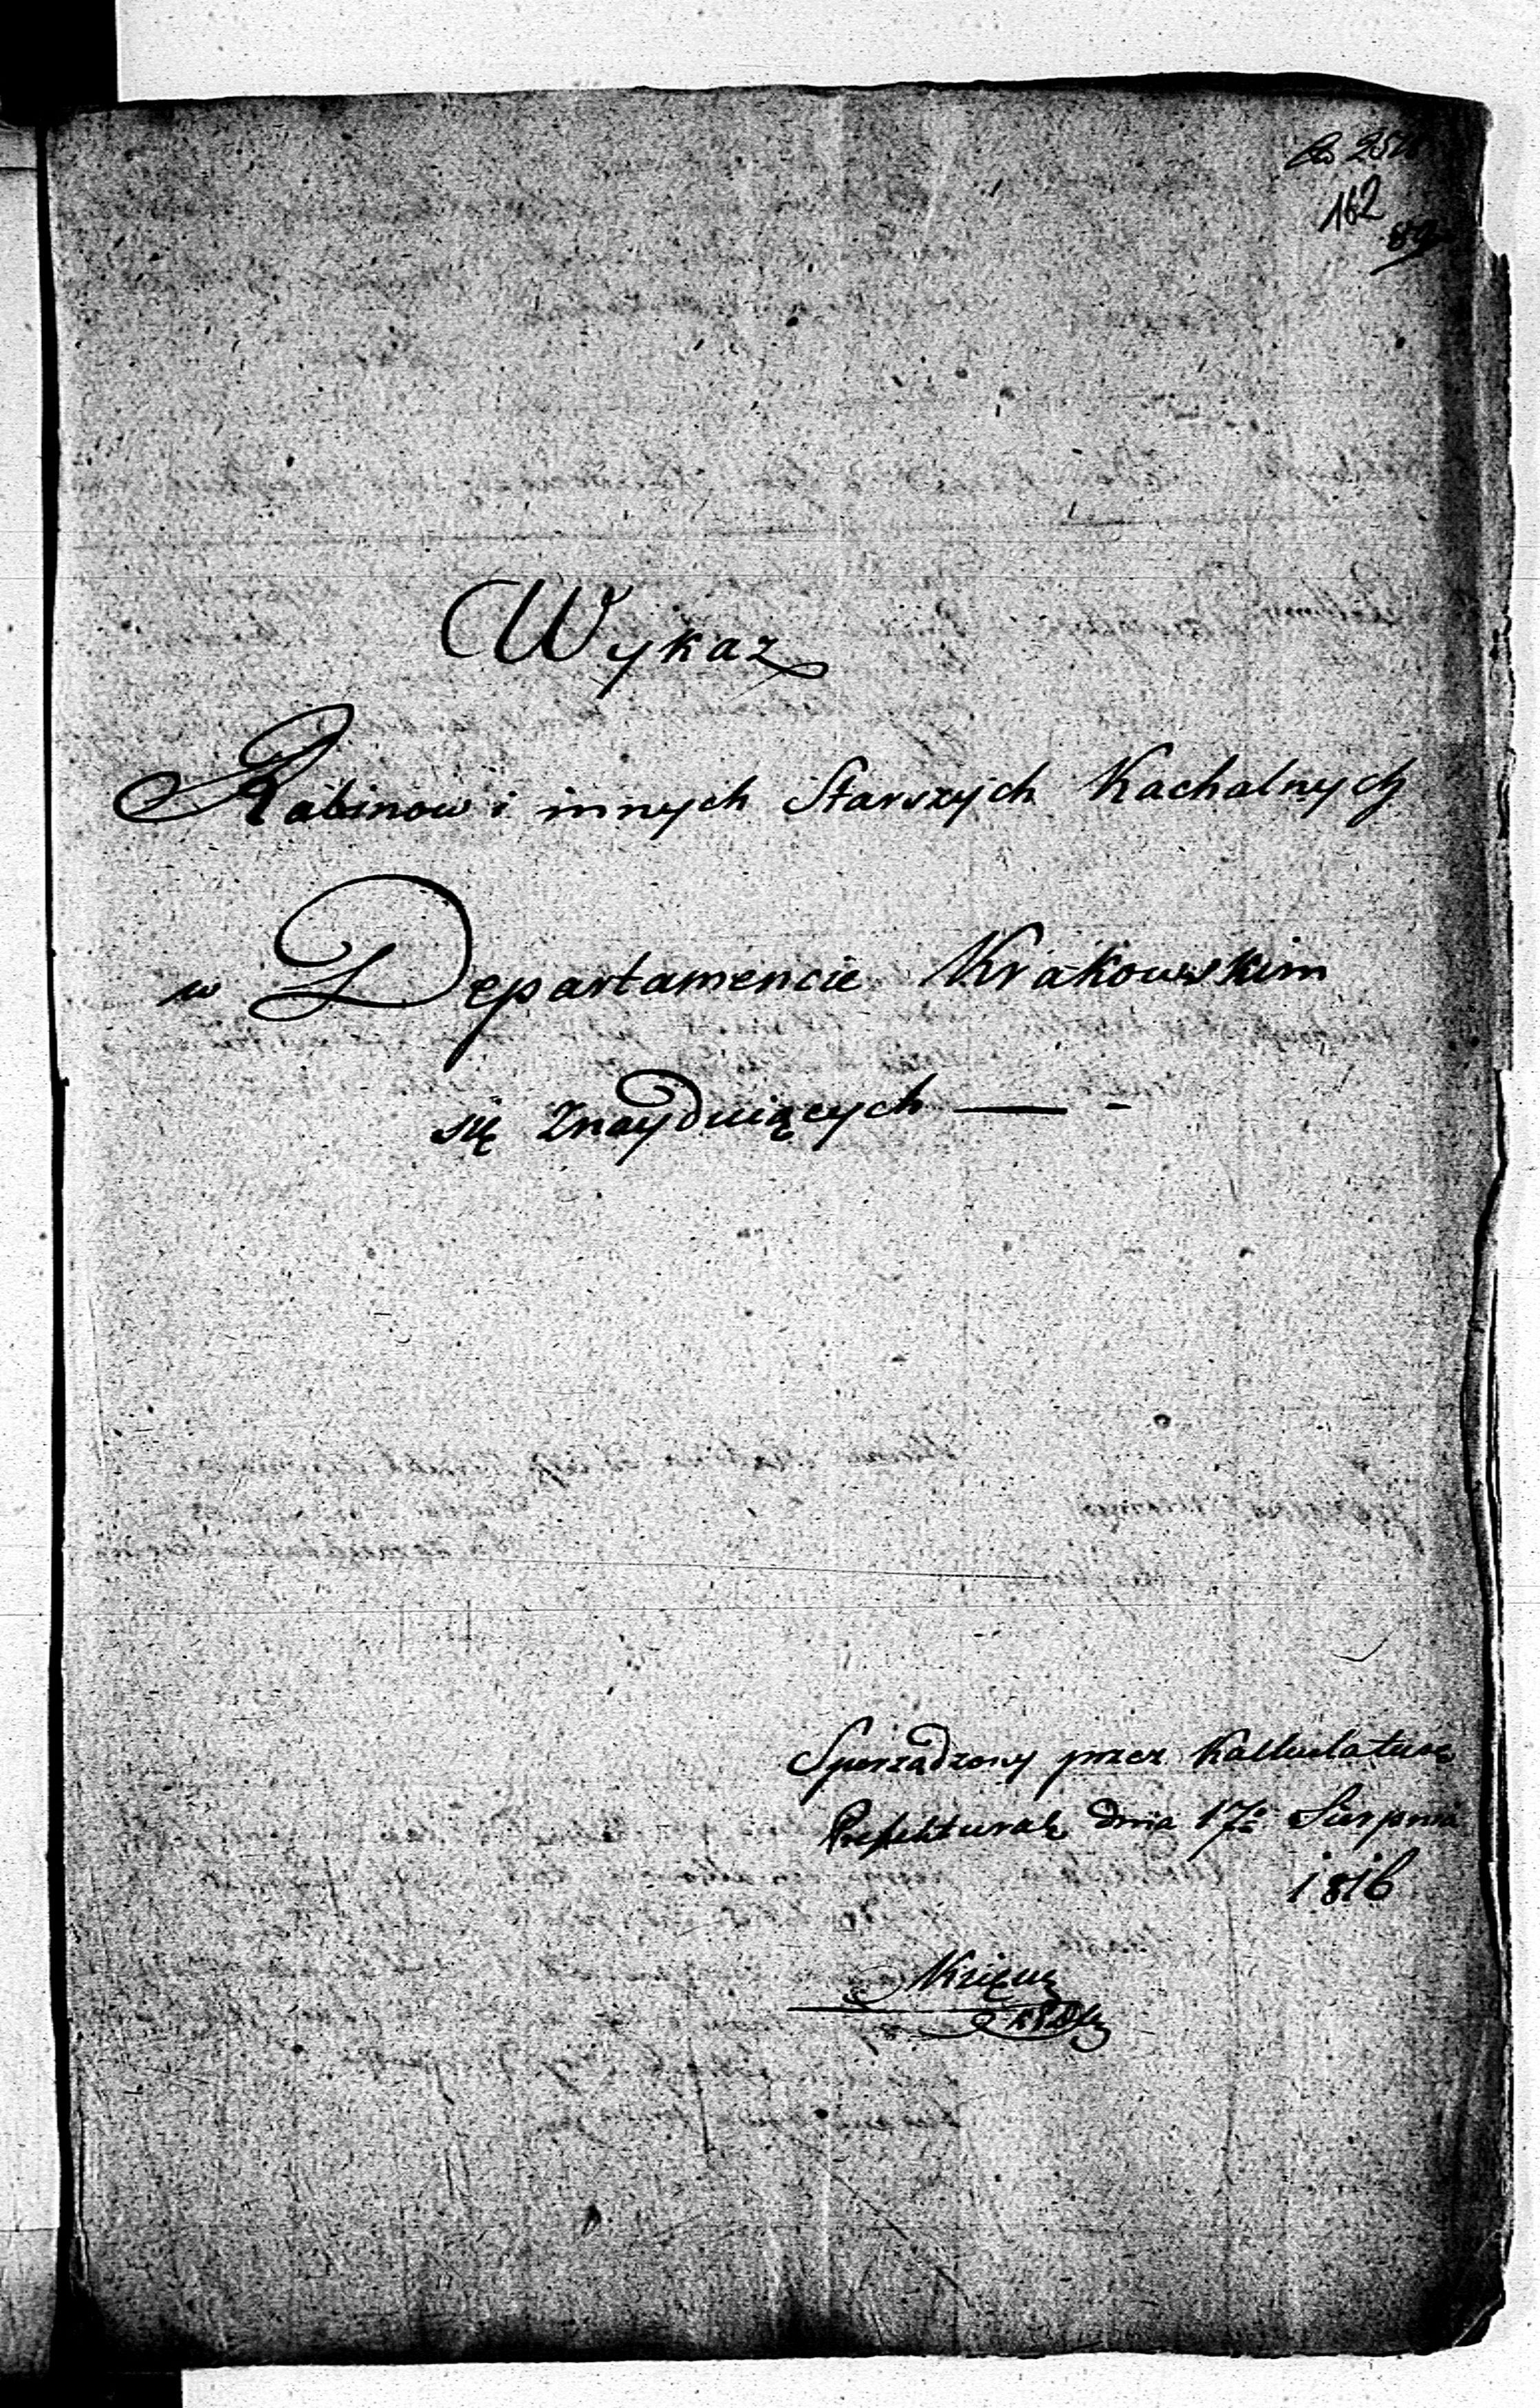 162
Wykaz
Rabinow i innych Starszych Kachalnych
w Departamencie Krakowskim
się Znayduiących — -
Sporządzony przez Kalkulaturę
Prefekturalę dnia 17º Sierpnia
1816